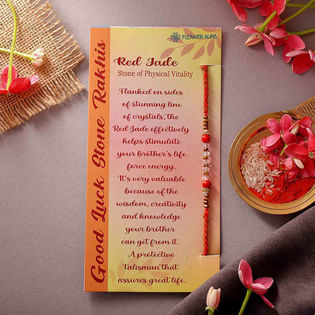 FLOWER AURA
Red Jade
Stone of Physical Vitality
Good Luck Stone Rakhis
Flanked on sides
of stunning line
of crystals, the
Red Jade effectively
helps stimulate
your brother's life
force energy.
It's very valuable
because of the
wisdom, creativity
and knowledge
your brother
can get from it.
A protective
talisman that
assures great life.